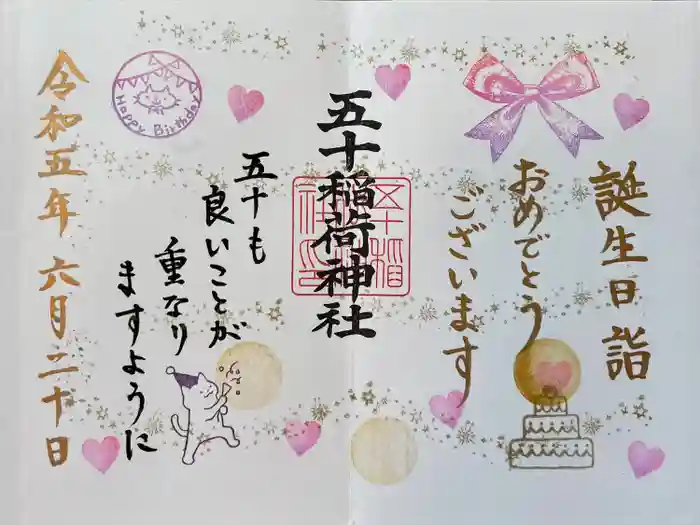 誕生日詣
おめでとう
ございます
五十稲荷神社
五十も
良いことが
重なり
ますように
Happy Birthday
令和五年 六月二十日